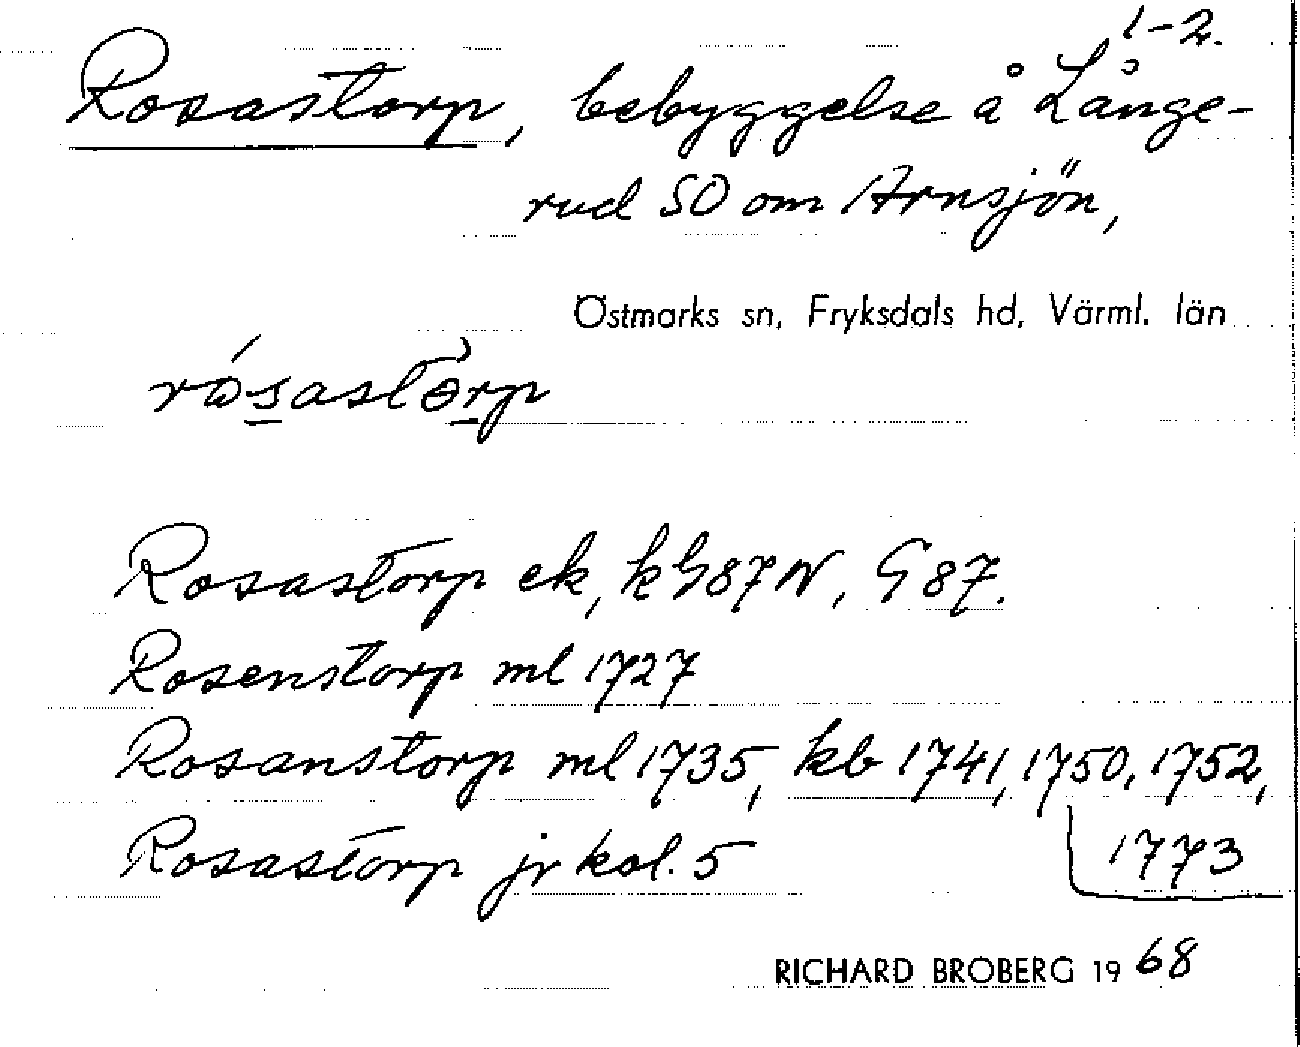 1-2.
Rosastorp, bebyggelse å Långe-
rud SO om Arnsjön,
Östmarks sn, Fryksdals hd, Värml. län
rósastòrp
Rosastorp ek, k G87N, G 87.
Rosenstorp ml 1727
Rosanstorp ml 1735, kb 1741, 1750, 1752,
1773
Rosastorp jr kol. 5
RICHARD BROBERG 1968